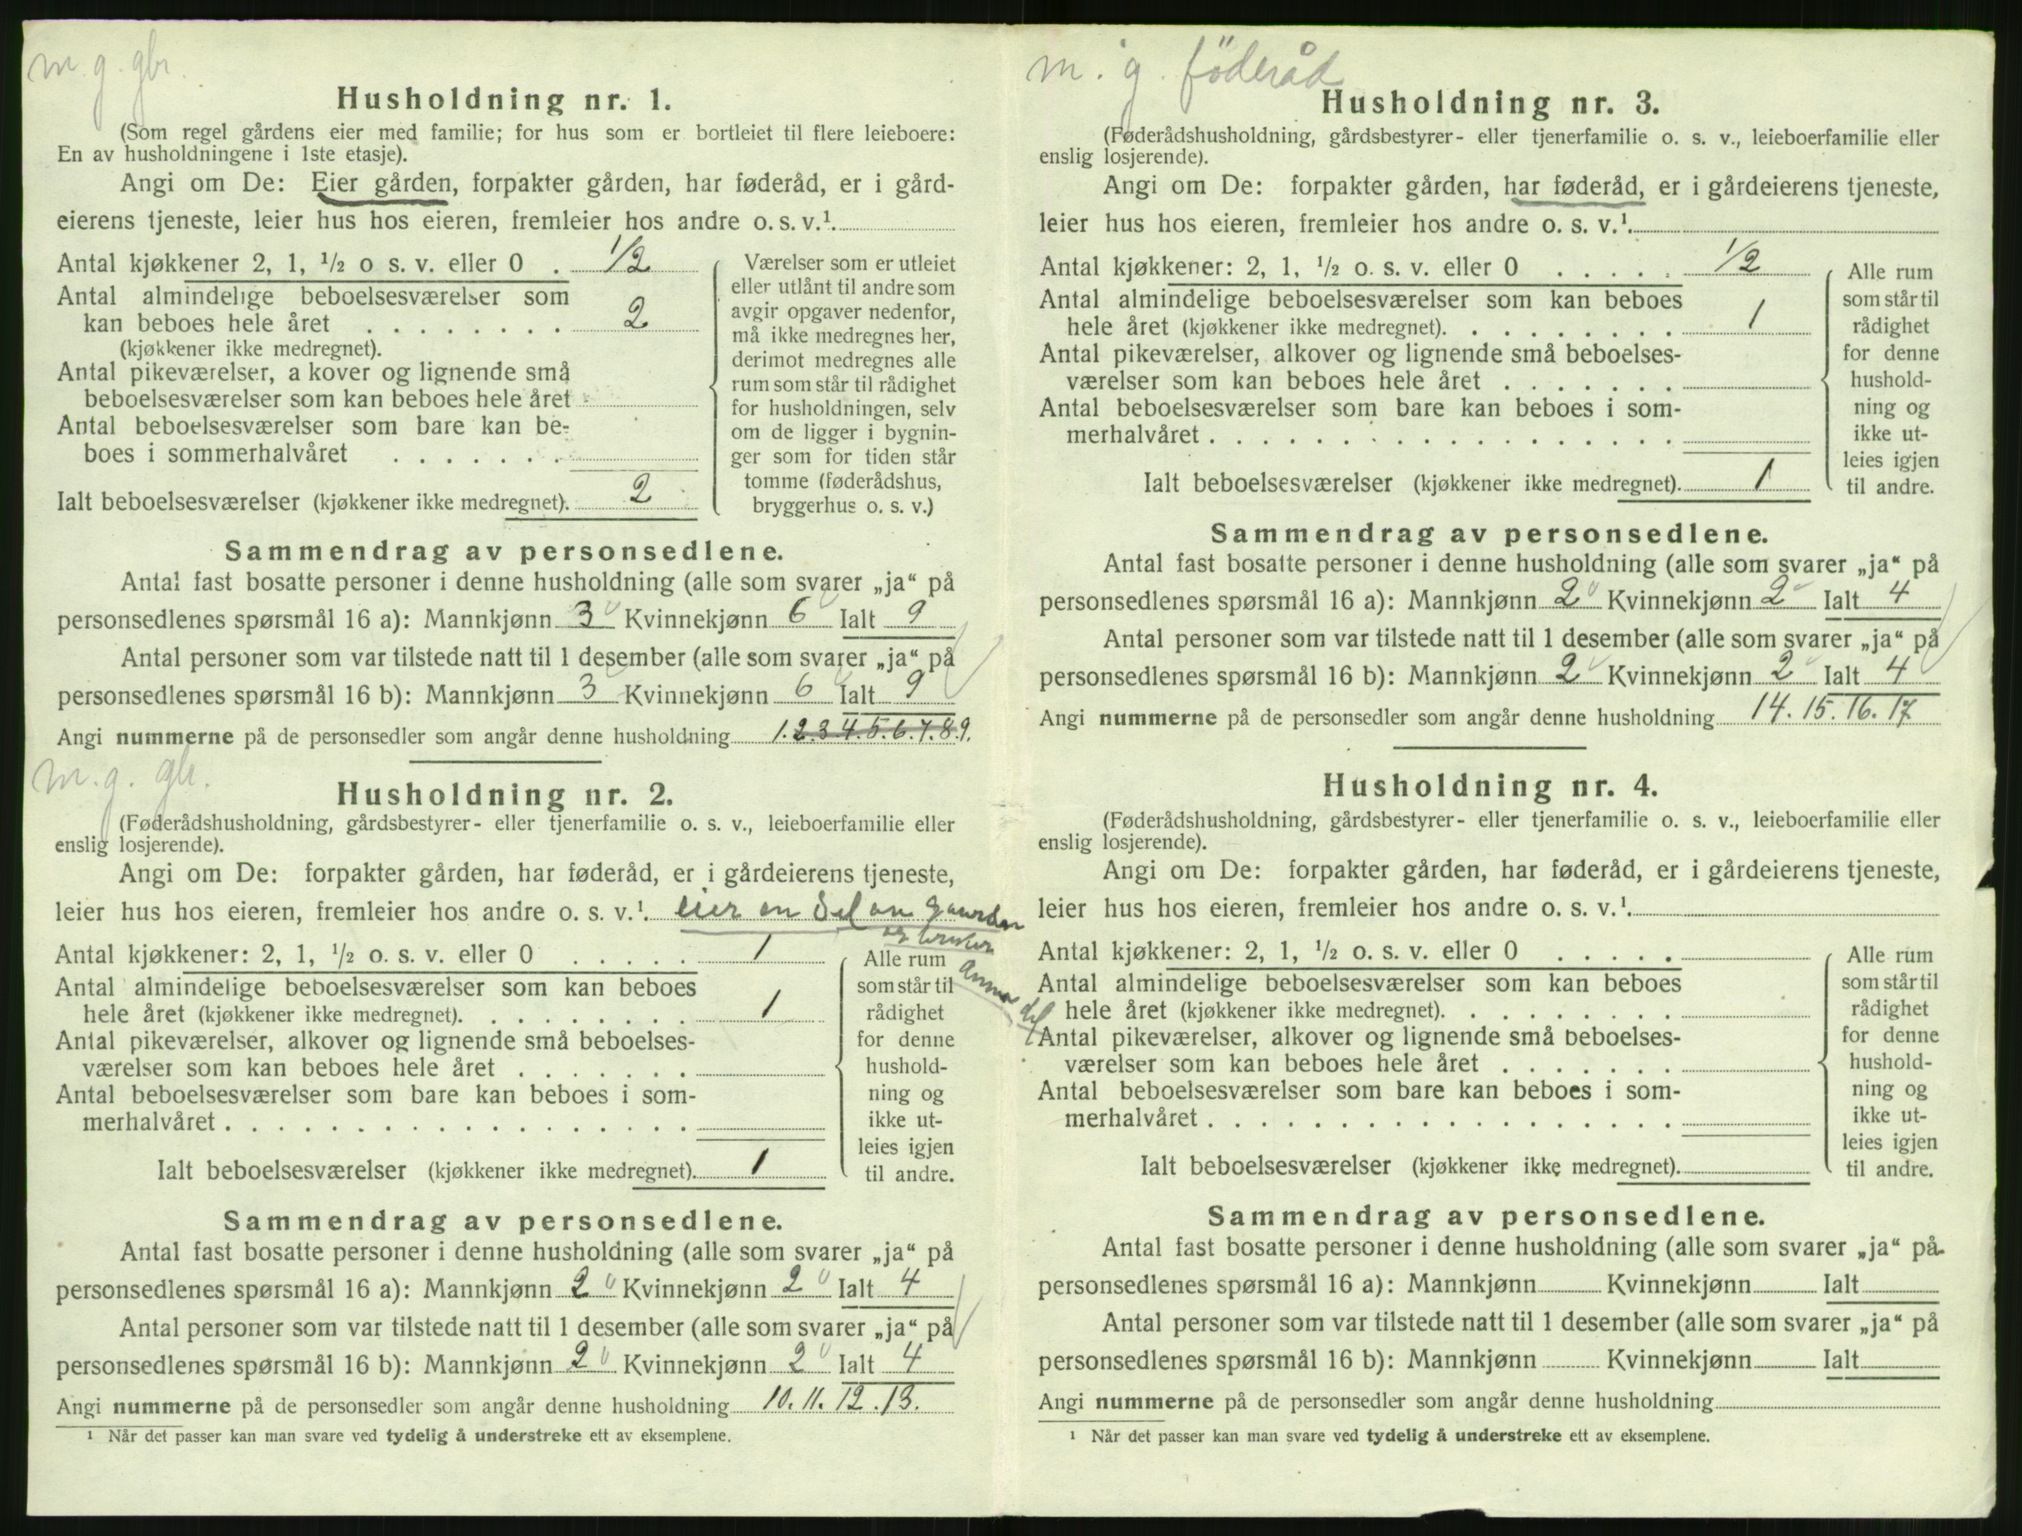 m. g. gbr.
Husholdning nr. 1.
(Som regel gårdens eier med familie; for hus som er bortleiet til flere leieboere:
En av husholdningene i 1ste etasje).
Angi om De: Eier gården, forpakter gården, har føderåd, er i gård-
eierens tjeneste, leier hus hos eieren, fremleier hos andre o. s. v.¹.
Antal kjøkkener 2, 1, ½ o s. v. eller 0 . 1/2
Antal almindelige beboelsesværelser som
kan beboes hele året . . . . . . . . 2
(kjøkkener ikke medregnet).
Antal pikeværelser, a kover og lignende små
beboelsesværelser som kan beboes hele året
Antal beboelsesværelser som bare kan be-
boes i sommerhalvåret . . . . . . .
Ialt beboelsesværelser (kjøkkener ikke medregnet). 2
Værelser som er utleiet
eller utlånt til andre som
avgir opgaver nedenfor,
må ikke medregnes her,
derimot medregnes alle
rum som står til rådighet
for husholdningen, selv
om de ligger i bygnin-
ger som for tiden står
tomme (føderådshus,
bryggerhus o. s. v.)
Sammendrag av personsedlene.
Antal fast bosatte personer i denne husholdning (alle som svarer „ja“ på
personsedlenes spørsmål 16 a): Mannkjønn 3 Kvinnekjønn 6 Ialt 9
Antal personer som var tilstede natt til 1 desember (alle som svarer „ja“ på
personsedlenes spørsmål 16 b): Mannkjønn 3 Kvinnekjønn 6 Ialt 9
Angi nummerne på de personsedler som angår denne husholdning 1.2.3.4.5.6.7.8.9.
m. g. gbr.
Husholdning nr. 2.
(Føderådshusholdning, gårdsbestyrer- eller tjenerfamilie o. s. v., leieboerfamilie eller
enslig losjerende).
Angi om De: forpakter gården, har føderåd, er i gårdeierens tjeneste,
leier hus hos eieren, fremleier hos andre o. s. v.¹. eier en del av gaarden
og bruker
annen del
Antal kjøkkener: 2, 1, ½ o. s. v. eller 0 . . . . . 1
Antal almindelige beboelsesværelser som kan beboes
hele året (kjøkkener ikke medregnet). . . . . . . . . 1
Antal pikeværelser, alkover og lignende små beboelses-
værelser som kan beboes hele året . . . . . . .
Antal beboelsesværelser som bare kan beboes i som-
merhalvåret . . . . . . . . . . . . . . . . . .
Ialt beboelsesværelser (kjøkkener ikke medregnet). 1
Alle rum
som står til
rådighet
for denne
hushold-
ning og
ikke ut-
leies igjen
til andre.
Sammendrag av personsedlene.
Antal fast bosatte personer i denne husholdning (alle som svarer „ja“ på
personsedlenes spørsmål 16 a): Mannkjønn 2 Kvinnekjønn 2 Ialt 4
Antal personer som var tilstede natt til 1 desember (alle som svarer „ja“ på
personsedlenes spørsmål 16 b): Mannkjønn 2 Kvinnekjønn 2 Ialt 4
Angi nummerne på de personsedler som angår denne husholdning 10. 11. 12. 13.
¹ Når det passer kan man svare ved tydelig å understreke ett av eksemplene.
m. g. föderåd
Husholdning nr. 3.
(Føderådshusholdning, gårdsbestyrer- eller tjenerfamilie o. s. v., leieboerfamilie eller
enslig losjerende).
Angi om De: forpakter gården, har føderåd, er i gårdeierens tjeneste,
leier hus hos eieren, fremleier hos andre o. s. v.¹.
Antal kjøkkener: 2, 1, ½ o. s. v. eller 0 . . . . . 1/2
Antal almindelige beboelsesværelser som kan beboes
hele året (kjøkkener ikke medregnet). . . . . . . . . 1
Antal pikeværelser, alkover og lignende små beboelses-
værelser som kan beboes hele året . . . . . . .
Antal beboelsesværelser som bare kan beboes i som-
merhalvåret . . . . . . . . . . . . . . . . . .
Ialt beboelsesværelser (kjøkkener ikke medregnet). 1
Alle rum
som står til
rådighet
for denne
hushold-
ning og
ikke ut-
leies igjen
til andre.
Sammendrag av personsedlene.
Antal fast bosatte personer i denne husholdning (alle som svarer „ja“ på
personsedlenes spørsmål 16 a): Mannkjønn 2 Kvinnekjønn 2 Ialt 4
Antal personer som var tilstede natt til 1 desember (alle som svarer „ja“ på
personsedlenes spørsmål 16 b): Mannkjønn 2 Kvinnekjønn 2 Ialt 4
Angi nummerne på de personsedler som angår denne husholdning 14. 15. 16. 17
Husholdning nr. 4.
(Føderådshusholdning, gårdsbestyrer- eller tjenerfamilie o. s. v., leieboerfamilie eller
enslig losjerende).
Angi om De: forpakter gården, har føderåd, er i gårdeierens tjeneste,
leier hus hos eieren, fremleier hos andre o. s. v.¹.
Antal kjøkkener: 2, 1, ½ o. s. v. eller 0 . . . . .
Antal almindelige beboelsesværelser som kan beboes
hele året (kjøkkener ikke medregnet). . . . . . . . .
Antal pikeværelser, alkover og lignende små beboelses-
værelser som kan beboes hele året . . . . . . .
Antal beboelsesværelser som bare kan beboes i som-
merhalvåret . . . . . . . . . . . . . . . . . .
Ialt beboelsesværelser (kjøkkener ikke medregnet).
Alle rum
som står til
rådighet
for denne
hushold-
ning og
ikke ut-
leies igjen
til andre.
Sammendrag av personsedlene.
Antal fast bosatte personer i denne husholdning (alle som svarer „ja“ på
personsedlenes spørsmål 16 a): Mannkjønn Kvinnekjønn Ialt
Antal personer som var tilstede natt til 1 desember (alle som svarer „ja“ på
personsedlenes spørsmål 16 b): Mannkjønn Kvinnekjønn Ialt
Angi nummerne på de personsedler som angår denne husholdning
¹ Når det passer kan man svare ved tydelig å understreke ett av eksemplene.